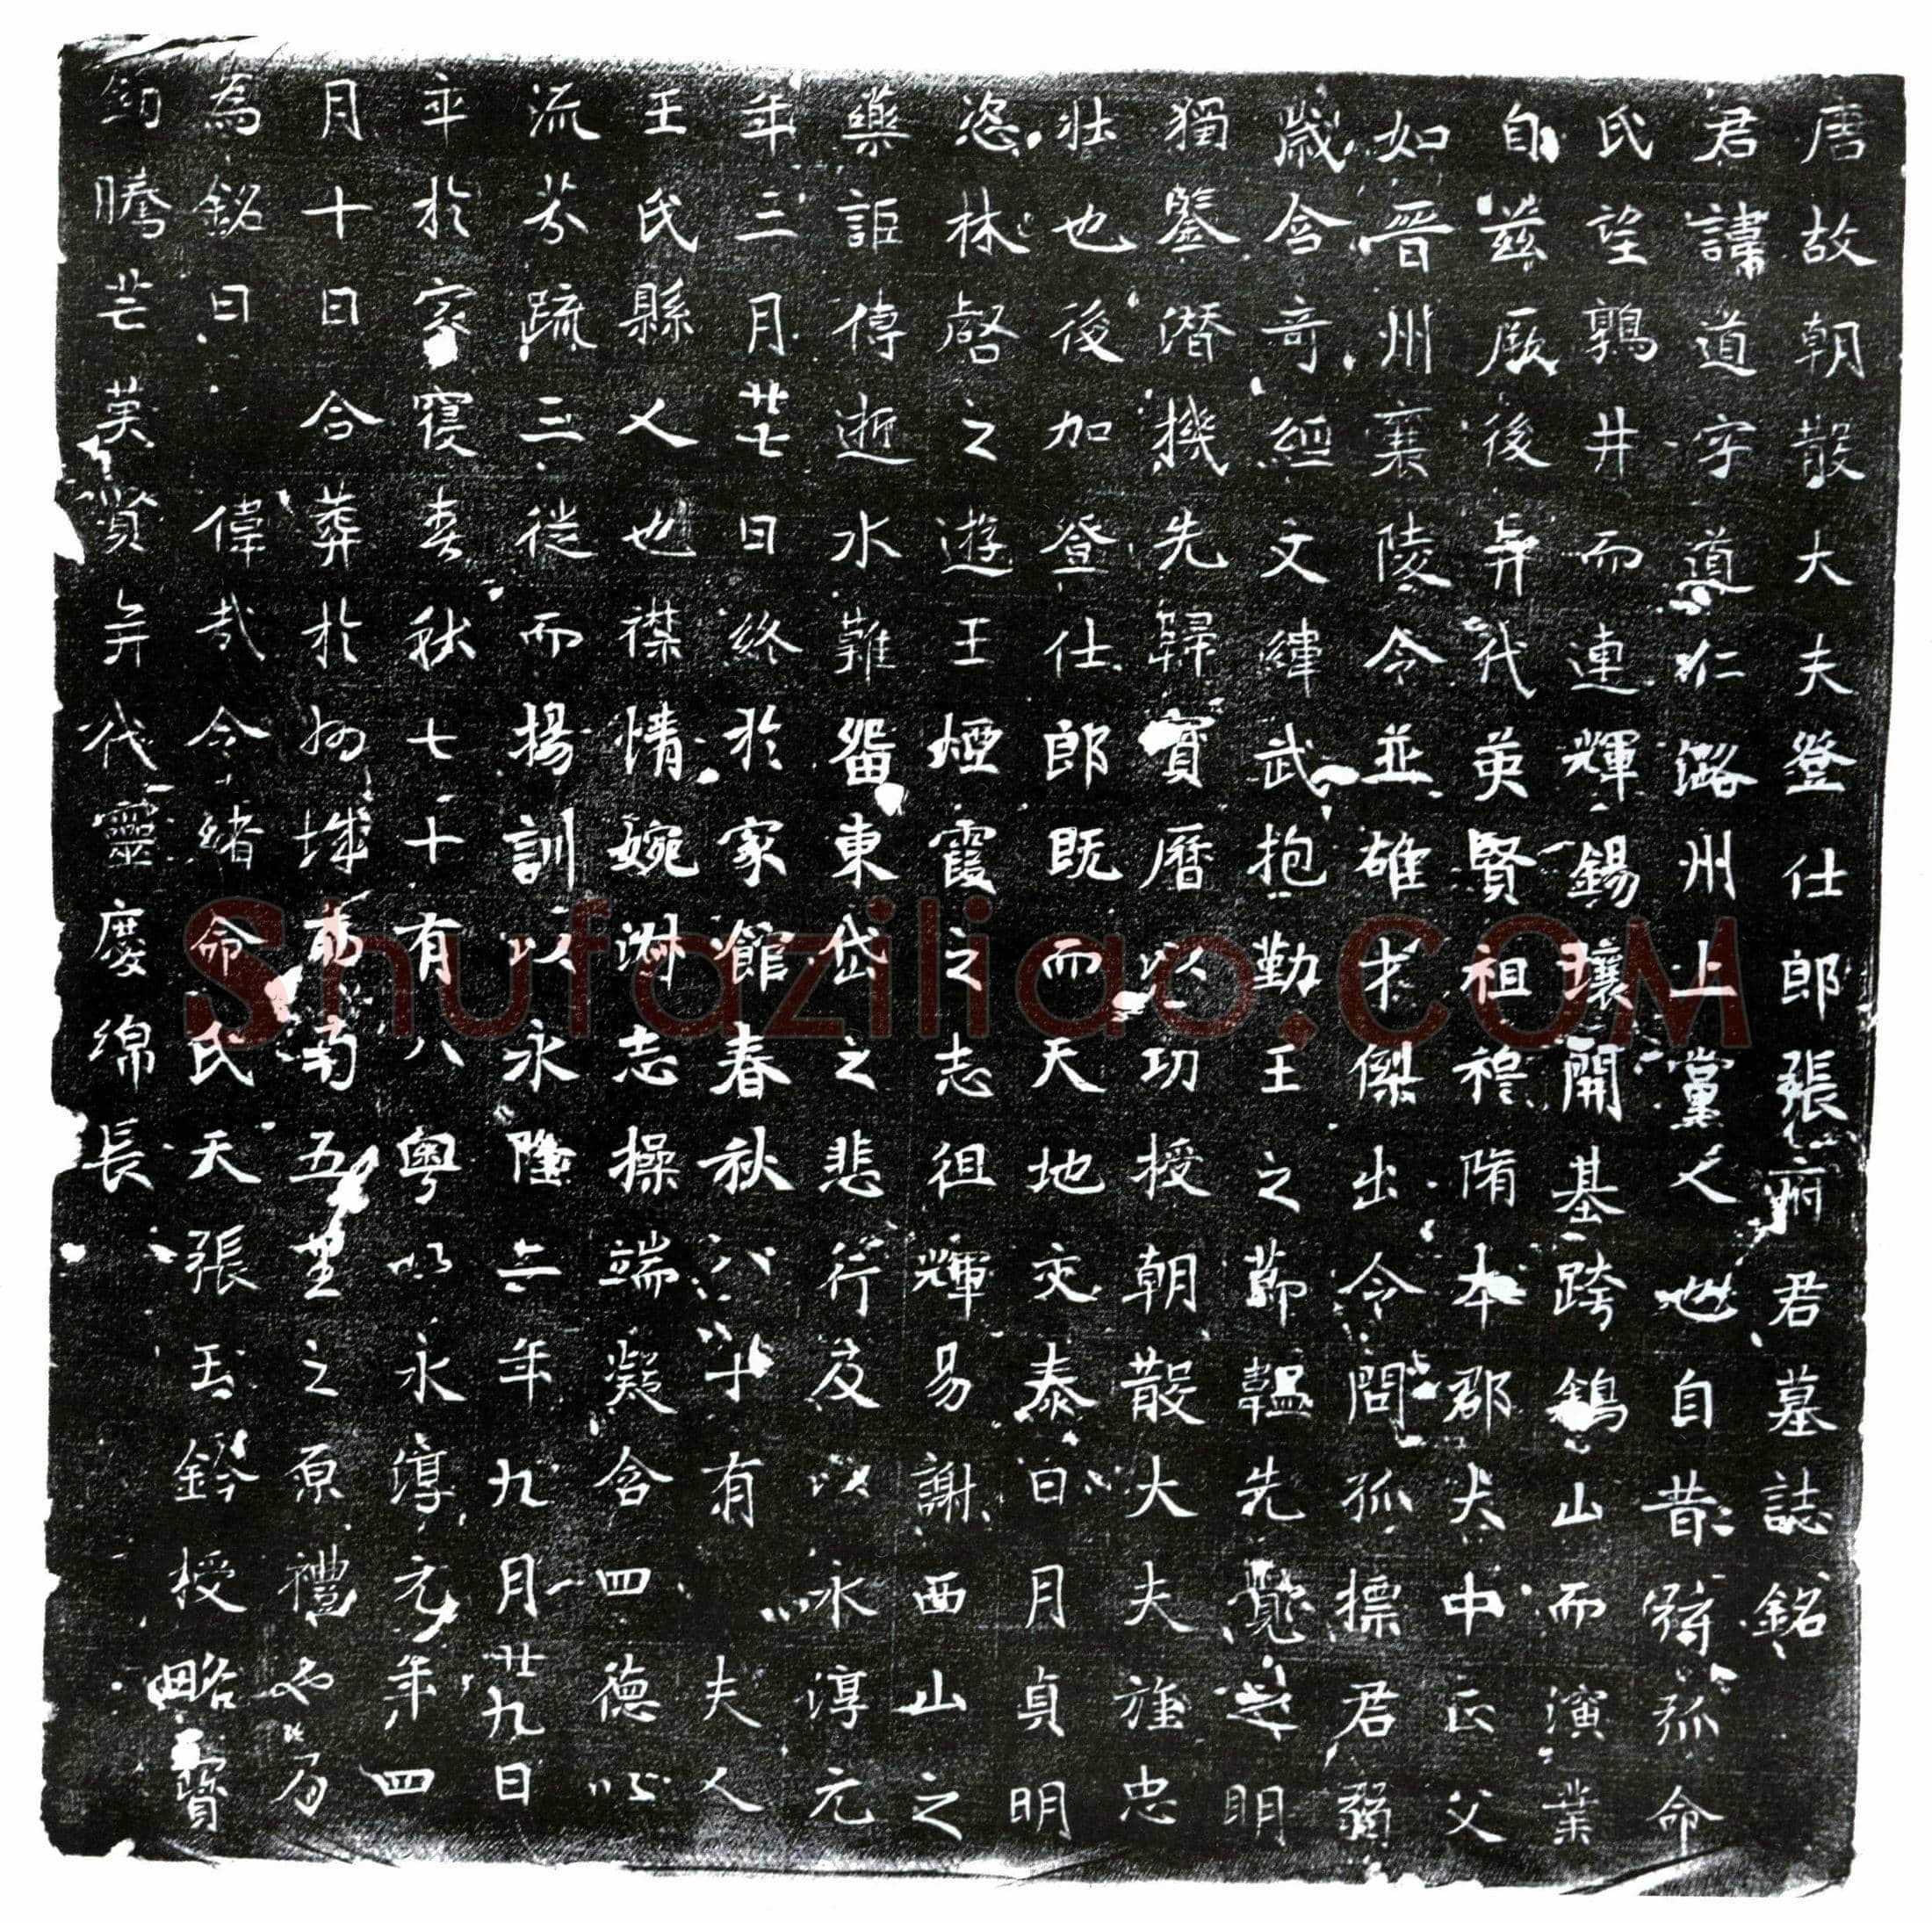 唐故朝散大夫登仕郎張府君墓誌銘
君諱道字道仁潞州上黨人也自昔疏弧命
氏望鶉井而連輝錫壤開基跨鶴山而演業
自茲厥後弈代英賢祖禮隋本郡大中正父
如晉州襄陵令並雄才傑出令問孤摽君弱
歲含奇經文緯武抱勤王之節韞先覺之明
獨鑒潛機先歸寶曆以功授朝散大夫旌忠
壯也後加登仕郎既而天地交泰日月貞明
恣林磬之遊王煙霞之志徂輝易謝西山之
藥詎停逝水難留東岱之悲行及以永淳元
年三月廿七日終於家館春秋八十有 夫人
王氏縣人也襟情婉淋志操端凝含四德以
流芬疏三從而揚訓以永隆二年九月廿九日
卒於家寢春秋七十有八粵以永淳元年四
月十日合葬於州城西南五里之原禮也乃
為銘曰 偉哉令緒命氏天張玉鈐授略寶
劍騰芒英賢弈代靈慶綿長
Shufaziliao.COM